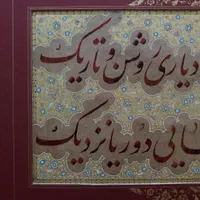 دیاری روشن و تاریک
ایی دور یا نزدیک